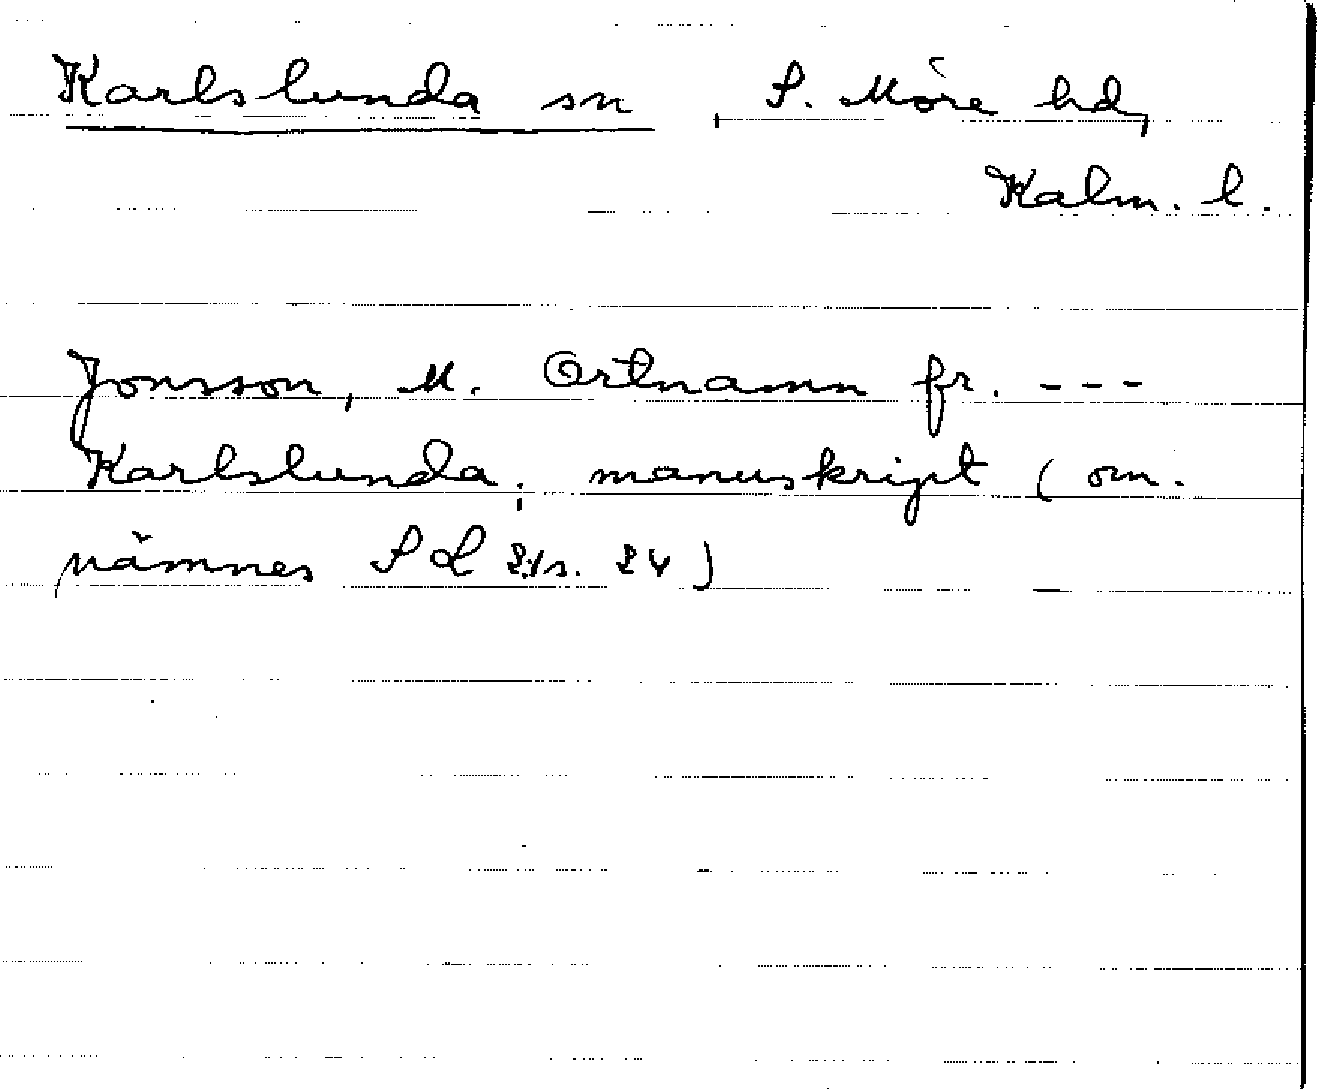 Karlslunda sn, S. Möre hd,
Kalm. l.
Jonsson, M. Ortnamn fr. ---
Karlslunda; manuskript (om-
nämnes SL s. 24)